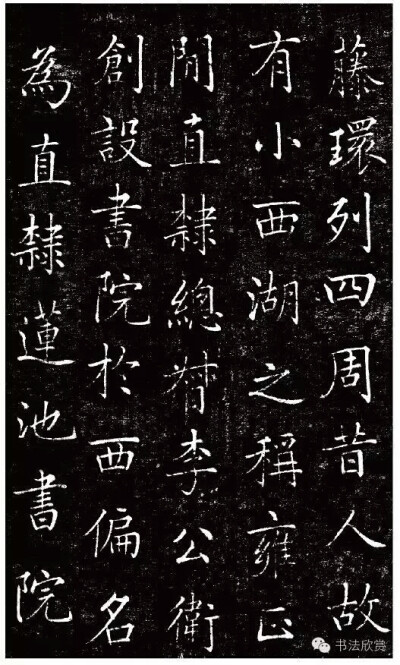 藤環列四周昔人故
有小西湖之稱雍正
間直隸總督李公衛
創設書院於西偏名
為直隸蓮池書院
书法欣赏